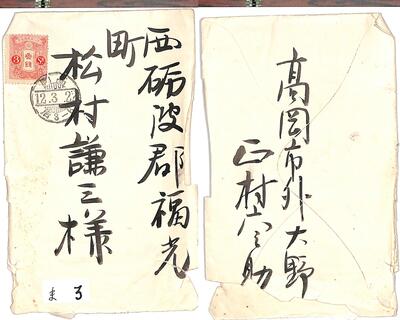 西砺波郡福光
町
松村謙三様
12.3.2
ま ろ
高岡市外大野
正村六之助